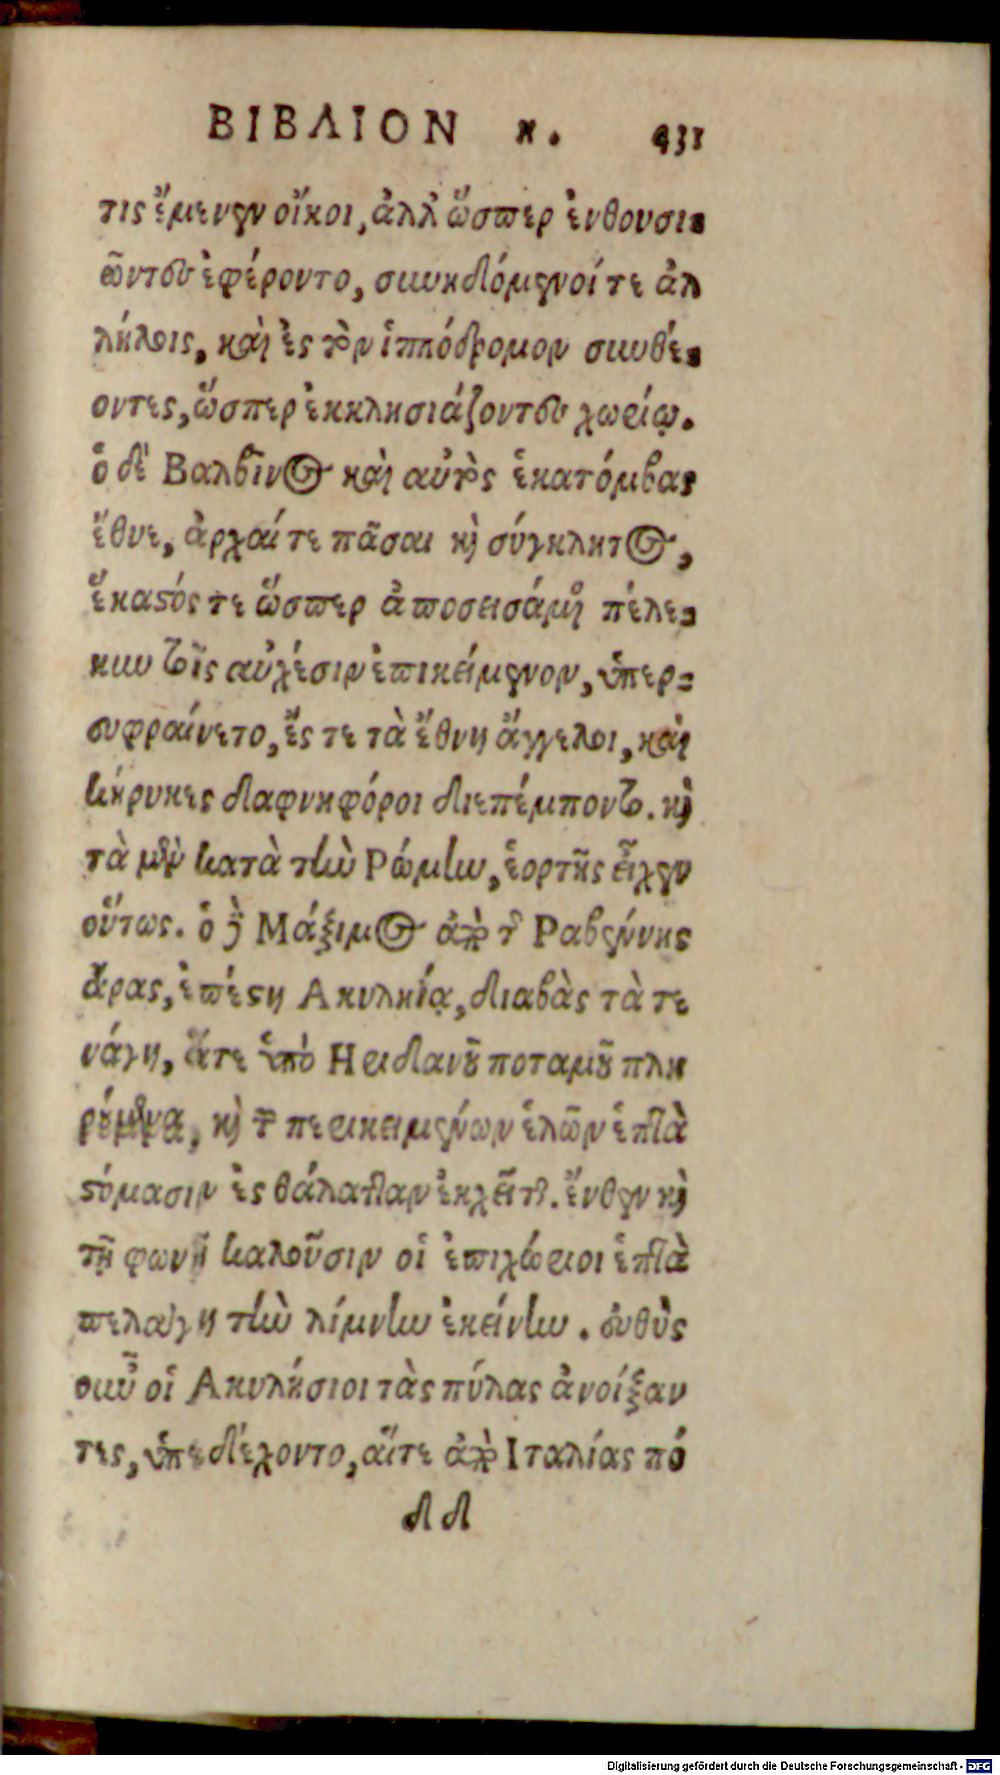 ΒΙΒΛΙΟΝ η. 431
τις ἔμενεν οἴκοι, ἀλλ' ὥσπερ ἐνθουσι-
ῶντες ἐφέροντο, συνηδόμενοί τε ἀλ
λήλοις, καὶ ἐς τὸν ἱππόδρομον συνθέ-
οντες, ὥσπερ ἐκκλησιάζοντες χωρίῳ.
ὁ δὲ Βαλβῖνος καὶ αὐτὸς ἑκατόμβας
ἔθυε, ἀρχαί τε πᾶσαι κὶ σύγκλητος,
ἕκαστός τε ὥσπερ ἀποσεισάμενος πέλε-
κυν τοῖς αὐχέσιν ἐπικείμενον, ὑπερ-
ευφραίνετο, ἔς τε τὰ ἔθνη ἄγγελοι, καὶ
κήρυκες δαφνηφόροι διεπέμποντο. κὶ
τὰ μὲν κατὰ τὴν Ρώμην, ἑορτῆς εἶχεν
οὕτως. ὁ δὲ Μάξιμος ἀπὸ τῆς Ραβέννης
ἄρας, ἐπέστη Ακυληίᾳ, διαβὰς τὰ τε
νάγη, ἅτε ὑπὸ Ηριδανοῦ ποταμοῦ πλη
ρούμενα, κὶ τῶν περικειμένων ἑλῶν ἑπτὰ
στόμασιν ἐς θάλατταν ἐκχεῖται. ἔνθεν κὶ
τῇ φωνῇ καλοῦσιν οἱ ἐπιχώριοι ἑπτὰ
πελάγη τὴν λίμνην ἐκείνην. εὐθὺς
οὖν οἱ Ακυλήσιοι τὰς πύλας ἀνοίξαν
τες, ὑπεδέχοντο, αἵτε ἀπὸ Ιταλίας πό
dd
Digitalisierung gefördert durch die Deutsche Forschungsgemeinschaft - DFG